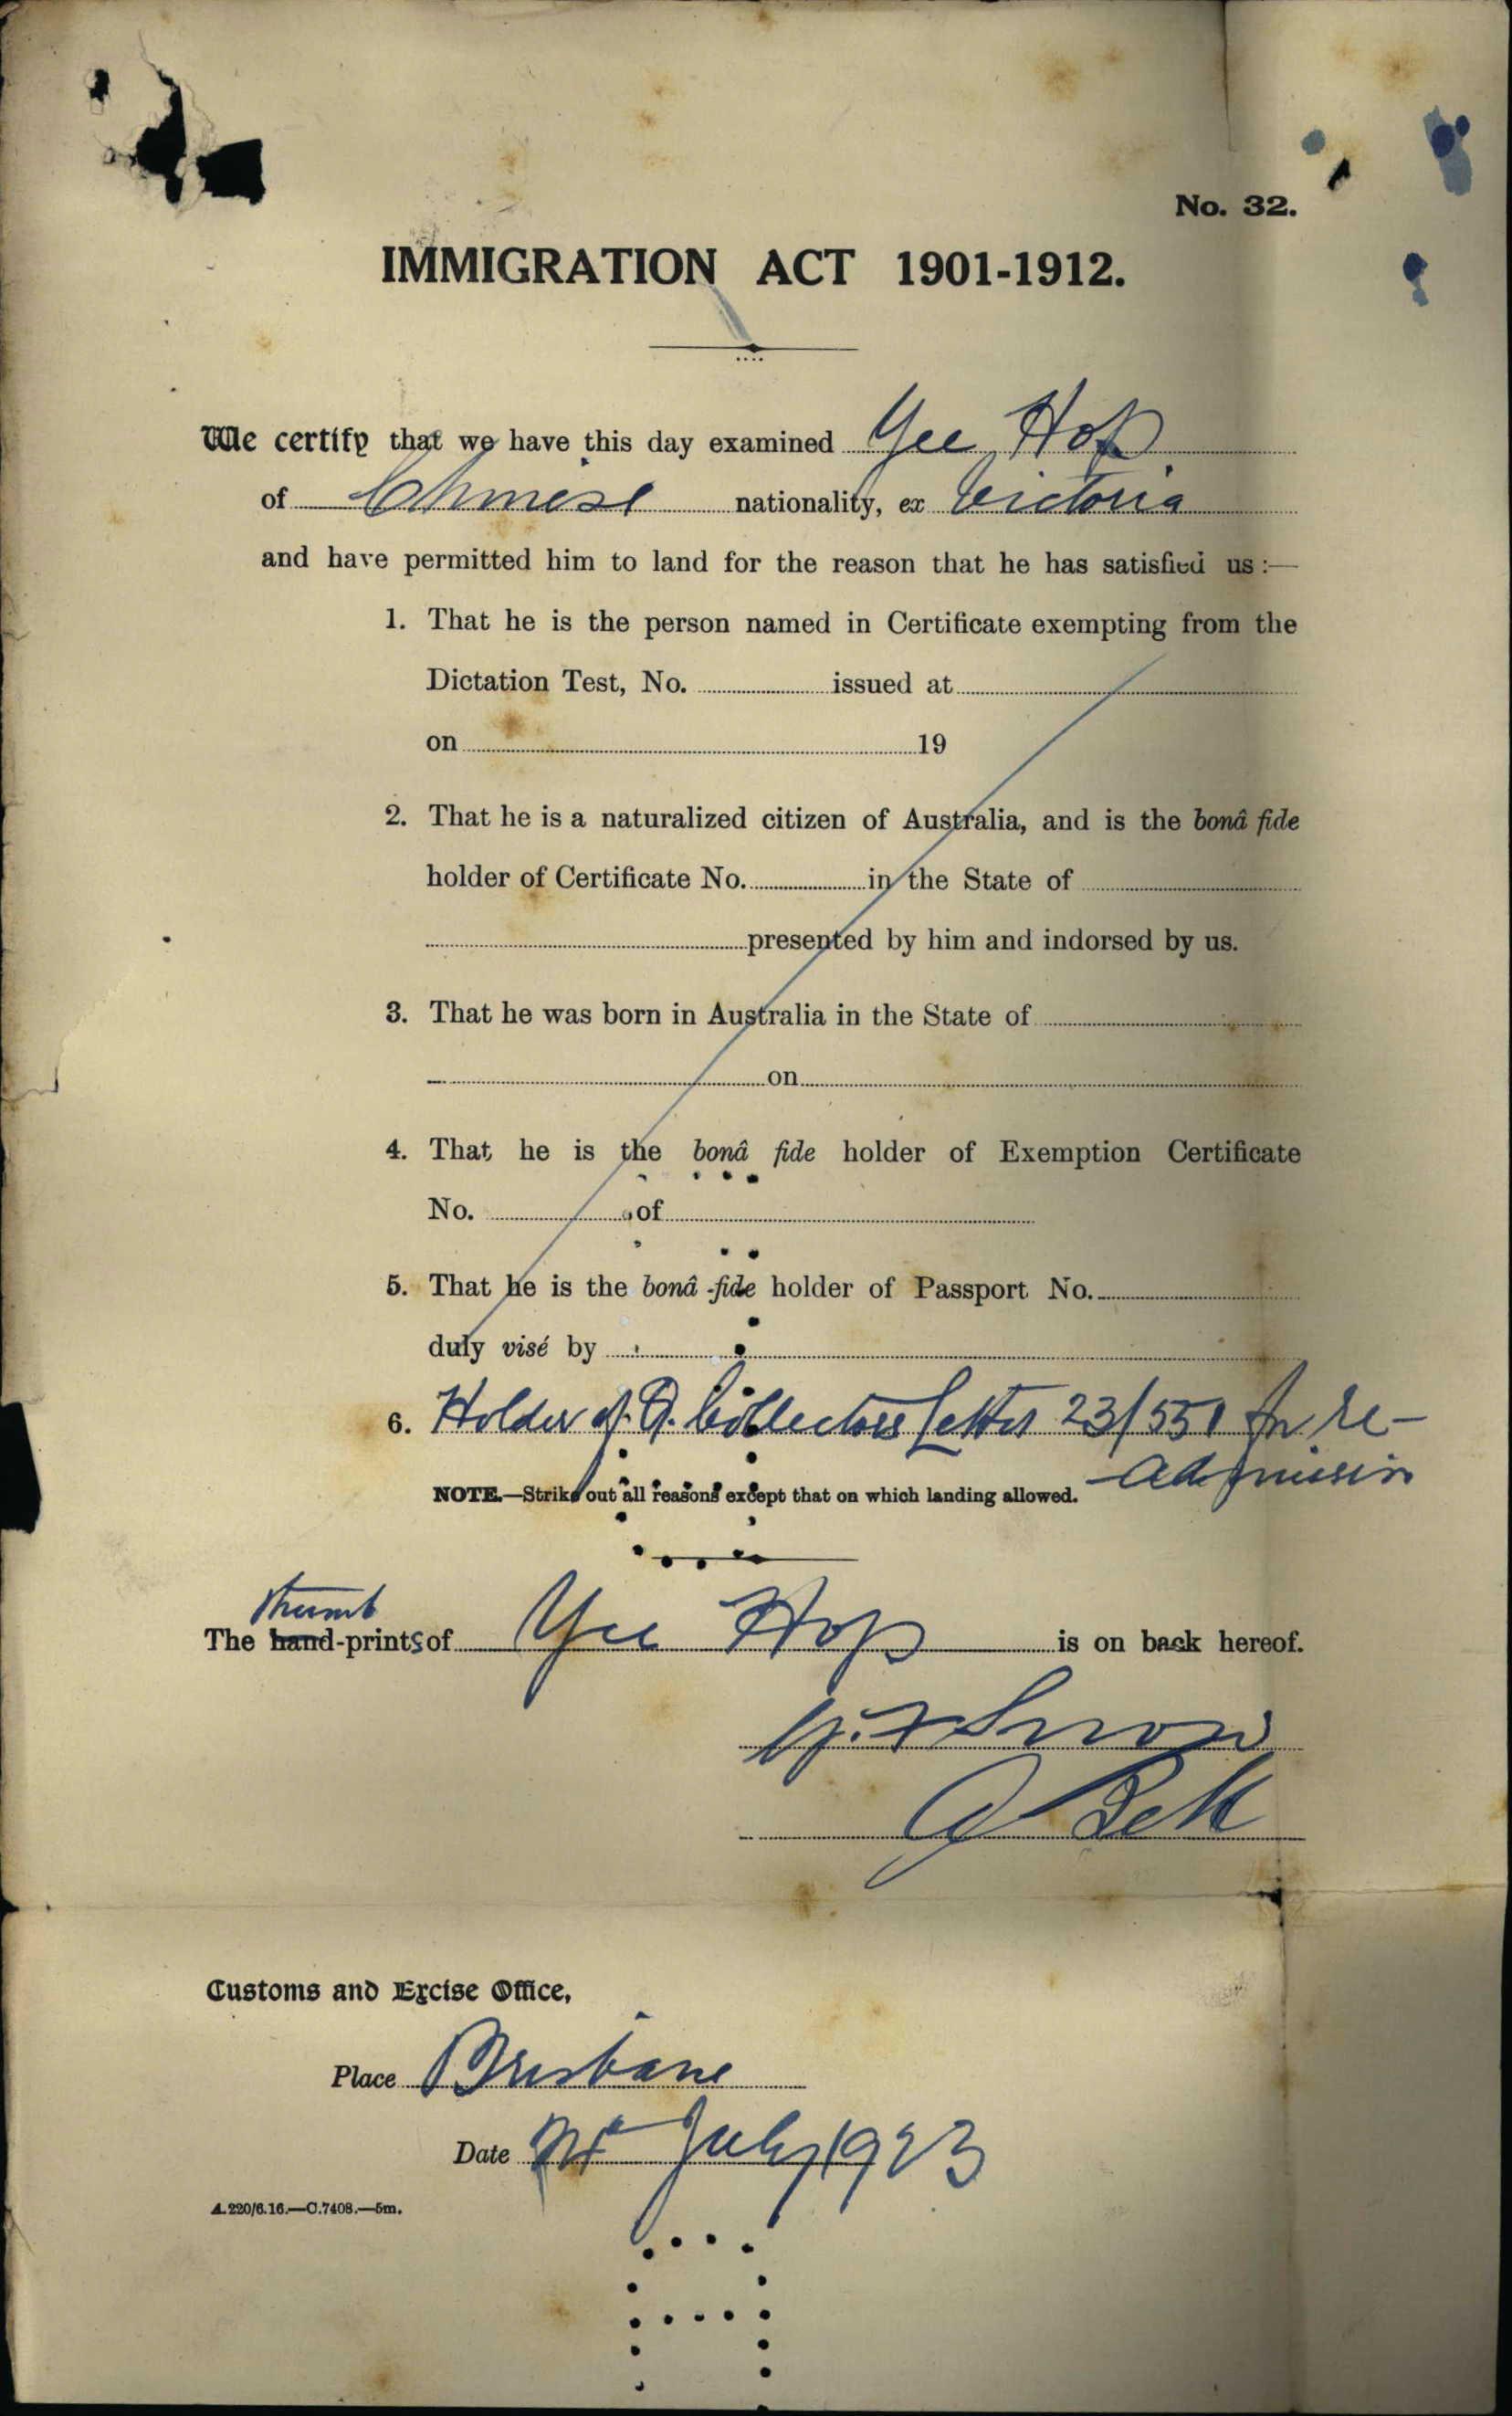 No. 32.
IMMIGRATION ACT 1901-1912.
We certify that we have this day examined Yee Hop
of Chinese nationality, ex Victoria
and have permitted him to land for the reason that he has satisfied us :—
1. That he is the person named in Certificate exempting from the
Dictation Test, No. issued at
on 19
2. That he is a naturalized citizen of Australia, and is the bonâ fide
holder of Certificate No. in the State of
presented by him and indorsed by us.
3. That he was born in Australia in the State of
on
4. That he is the bonâ fide holder of Exemption Certificate
No. of
5. That he is the bonâ-fide holder of Passport No.
duly visé by
6. Holder of Q. Collectors Letter 23/551 for re-
admission
NOTE.—Strike out all reasons except that on which landing allowed.
thumb
The hand-prints of Yee Hop is on back hereof.
Snow
Bell
Customs and Excise Office,
Place Brisbane
Date July 1923
A.220/6.16.—C.7408.—5m.